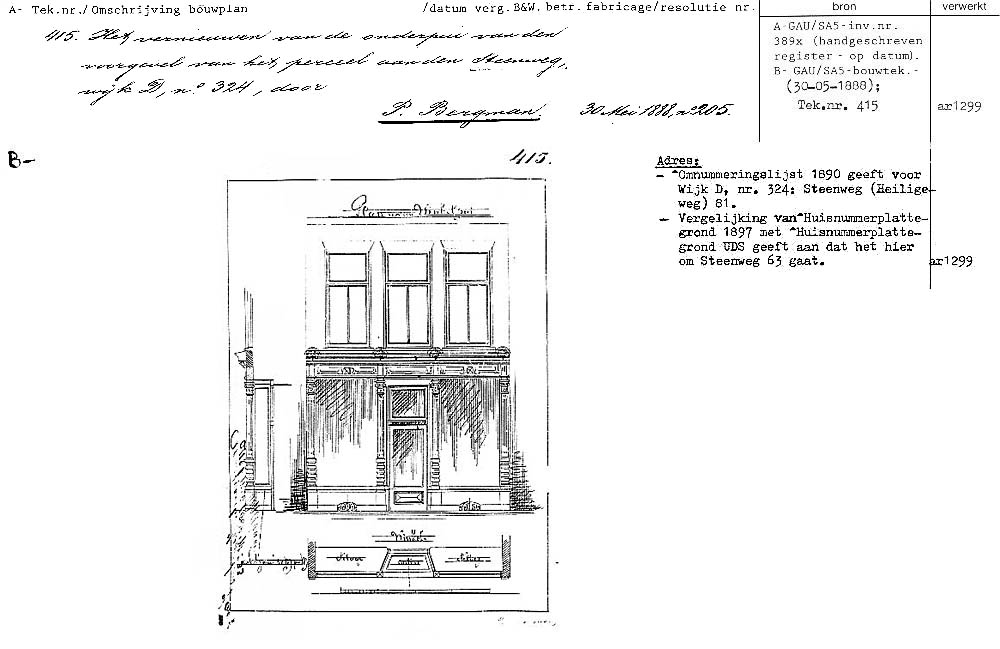 A- Tek.nr./Omschrijving bouwplan /datum verg.B&W. betr. fabricage/resolutie nr. bron verwerkt
415. Het vernieuwen van de onderpui van den
voorgevel van het, perceel aan den Steenweg,
wijk D, nº 324, door
P. Bergman. 30 Mei 1888, nº 205.
A-GAU/SA5-inv.nr.
389x (handgeschreven
register - op datum).
B- GAU/SA5-bouwtek.-
(30-05-1888);
Tek.nr. 415 ar1299
B-
415.
Adres:
- ^Omnummeringslijst 1890 geeft voor
Wijk D, nr. 324: Steenweg (Heilige-
weg) 81.
- Vergelijking van^Huisnummerplatte-
grond 1897 met ^Huisnummerplatte-
grond UDS geeft aan dat het hier
om Steenweg 63 gaat. ar1299
Winkel